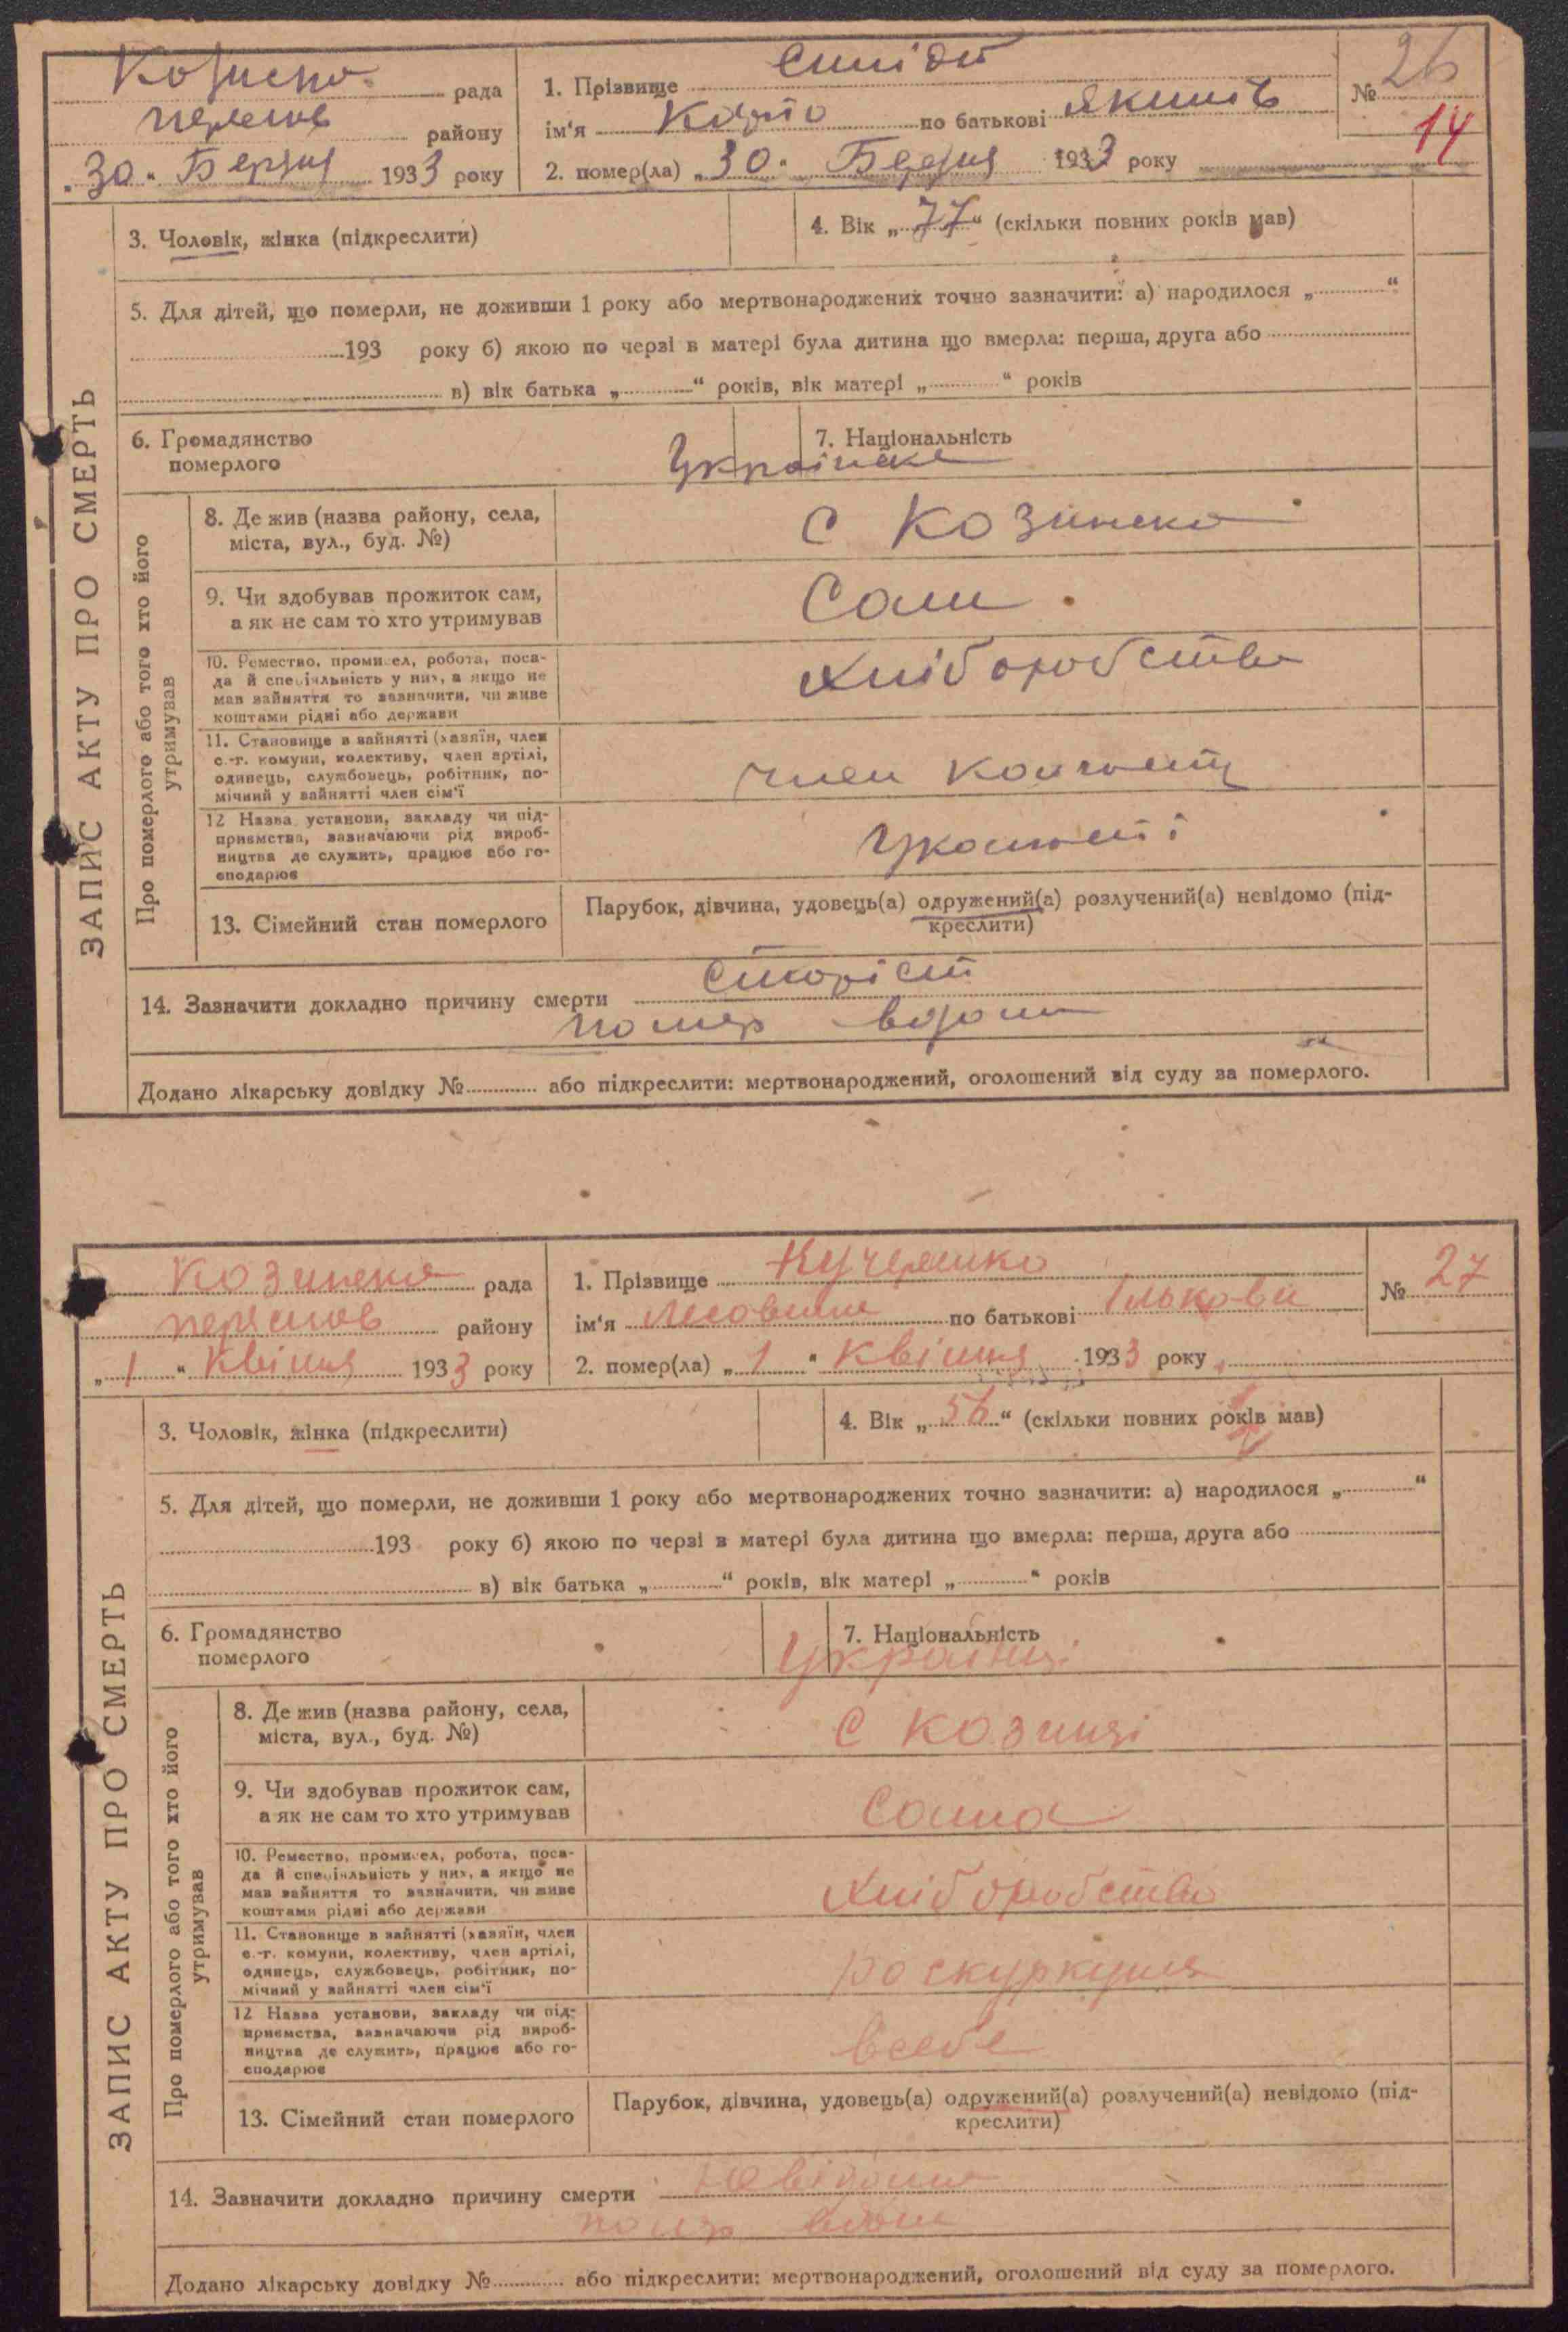 рада
району
„30“ Березня 1933 року
1. Прізвище
ім'я по батькові
2. помер(ла) „30“ Березня 1933 року
№ 26
14
3. Чоловік, жінка (підкреслити)
4. Вік „77“ (скільки повних років мав)
5. Для дітей, що померли, не доживши 1 року або мертвонароджених точно зазначити: а) народилося „ “
193 року б) якою по черзі в матері була дитина що вмерла: перша, друга або
в) вік батька „ “ років, вік матері „ “ років
6. Громадянство
померлого
7. Національність
ЗАПИС АКТУ ПРО СМЕРТЬ
Про померлого або того хто його
утримував
8. Де жив (назва району, села,
міста, вул., буд. №)
с Козинська
9. Чи здобував прожиток сам,
а як не сам то хто утримував
Сам
10. Ремество, промисел, робота, поса-
да й спеціяльність у них, а якщо не
мав зайняття то зазначити, чи живе
коштами рідні або держави
Хліборобство
11. Становище в зайнятті (хазяїн, член
с.-г. комуни, колективу, член артілі,
одинець, службовець, робітник, по-
мічний у зайнятті член сім'ї
член
12 Назва установи, закладу чи під-
приємства, зазначаючи рід вироб-
ництва де служить, працює або го-
сподарює
13. Сімейний стан померлого
Парубок, дівчина, удовець(а) одружений(а) розлучений(а) невідомо (під-
креслити)
14. Зазначити докладно причину смерти
помер
Додано лікарську довідку № або підкреслити: мертвонароджений, оголошений від суду за померлого.
Козинська рада
району
„1“ Квітня 1933 року
1. Прізвище Кучеренко
ім'я по батькові
2. помер(ла) „1“ Квітня 1933 року
№ 27
3. Чоловік, жінка (підкреслити)
4. Вік „56“ (скільки повних років мав)
5. Для дітей, що померли, не доживши 1 року або мертвонароджених точно зазначити: а) народилося „ “
193 року б) якою по черзі в матері була дитина що вмерла: перша, друга або
в) вік батька „ “ років, вік матері „ “ років
6. Громадянство
померлого
7. Національність
ЗАПИС АКТУ ПРО СМЕРТЬ
Про померлого або того хто його
утримував
8. Де жив (назва району, села,
міста, вул., буд. №)
с Козинці
9. Чи здобував прожиток сам,
а як не сам то хто утримував
Сама
10. Ремество, промисел, робота, поса-
да й спеціяльність у них, а якщо не
мав зайняття то зазначити, чи живе
коштами рідні або держави
Хліборобство
11. Становище в зайнятті (хазяїн, член
с.-г. комуни, колективу, член артілі,
одинець, службовець, робітник, по-
мічний у зайнятті член сім'ї
12 Назва установи, закладу чи під-
приємства, зазначаючи рід вироб-
ництва де служить, працює або го-
сподарює
всебе
13. Сімейний стан померлого
Парубок, дівчина, удовець(а) одружений(а) розлучений(а) невідомо (під-
креслити)
14. Зазначити докладно причину смерти
помер
Додано лікарську довідку № або підкреслити: мертвонароджений, оголошений від суду за померлого.